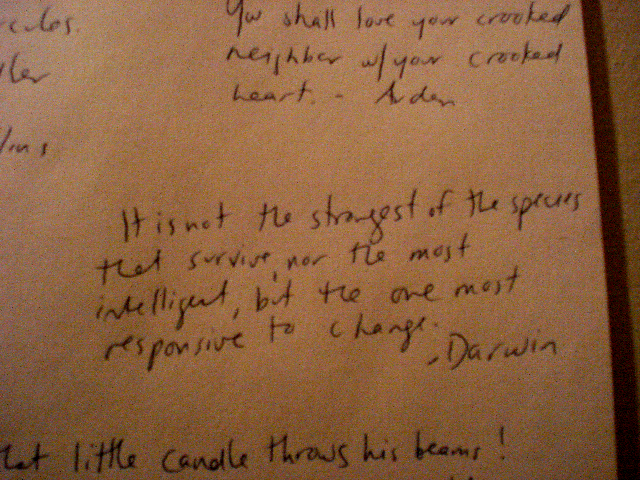 You shall love your crooked
neighbor w/ your crooked
heart. - Auden
It is not the strongest of the species
that survive, nor the most
intelligent, but the one most
responsive to change.
- Darwin
little candle throws his beams!